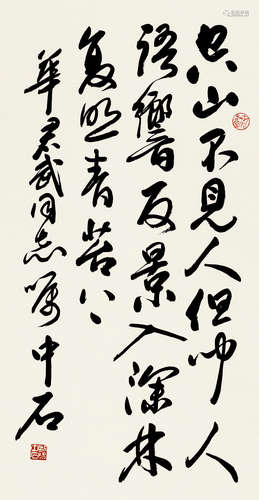 空山不見人但闻人
语響反景入深林
复照青苔上
華君武同志嘱中石